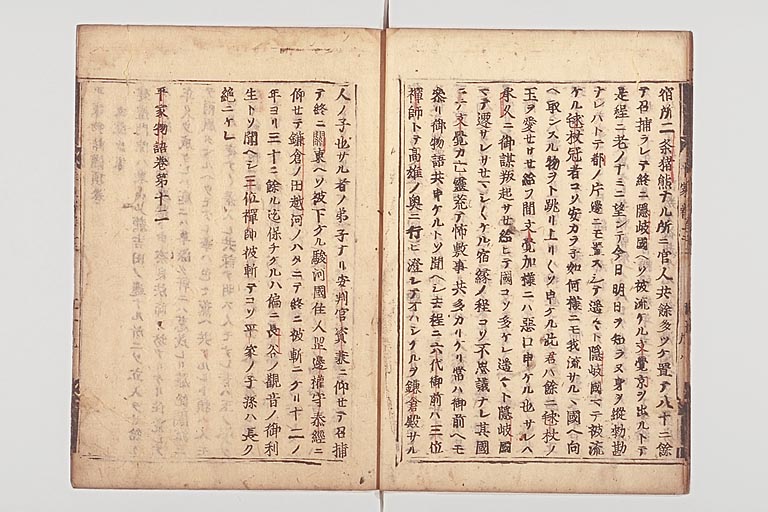 宿所二条猪熊ナル所ニ官人共餘多ツケ置テ八十ニ餘
テ召捕ラレテ終ニ隠岐國ヘソ被流ケル文覺京ヲ出ルトテ
是程ニ老ノナミニ望ンテ今日明日ヲ知ラヌ身ヲ縦勅勘
ナレハトテ都ノ片邊ニモ置スシテ遥々ト隠岐國マテ被流
ケル毬杖冠者コソ安カラ子如何様ニモ我流サルヽ國ヘ向
ヘ取ンスル物ヲト跳リ上リ〱ソ申ケル此君ハ餘ニ毬杖ノ
玉ヲ愛セサセ給フ間文覺加様ニハ悪口申ケル也サレハ
承久ニ御謀叛起サセ給ヒテ國コソ多ケレ遥々ト隠岐國
マテ遷サレサセマシ〱ケル宿縁ノ程コソ不思議ナレ其國
ニテ文覺カ亡靈荒テ怖敷事共多カリケリ常ハ御前ヘモ
参リ御物語共申ケルトソ聞ヘシ去程ニ六代御前ハ三位
禅師トテ高雄ノ奥ニ行ヒ澄シテヲハシケルヲ鎌倉殿サル
人ノ子也サル者ノ弟子ナリ安判官資兼ニ仰セテ召捕
テ終ニ關東ヘソ被下ケル駿河國住人岡邊權守泰經ニ
仰セテ鎌倉ノ田越河ノハタニテ終ニ被斬ニケリ十二ノ
年ヨリ三十ニ餘ル迄保チケルハ偏ニ長谷ノ觀音ノ御利
生トソ聞ヘシ三位禅師被斬テコソ平家ノ子孫ハ長ク
絶ニケレ
平家物語巻第十二